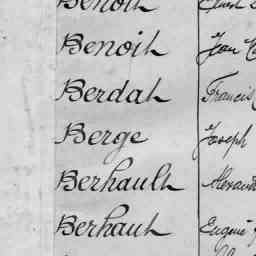 Benoit
Benoit Jean
Berdah Francis
Berge Joseph
Berhault Alexand
Berhaut Eugène